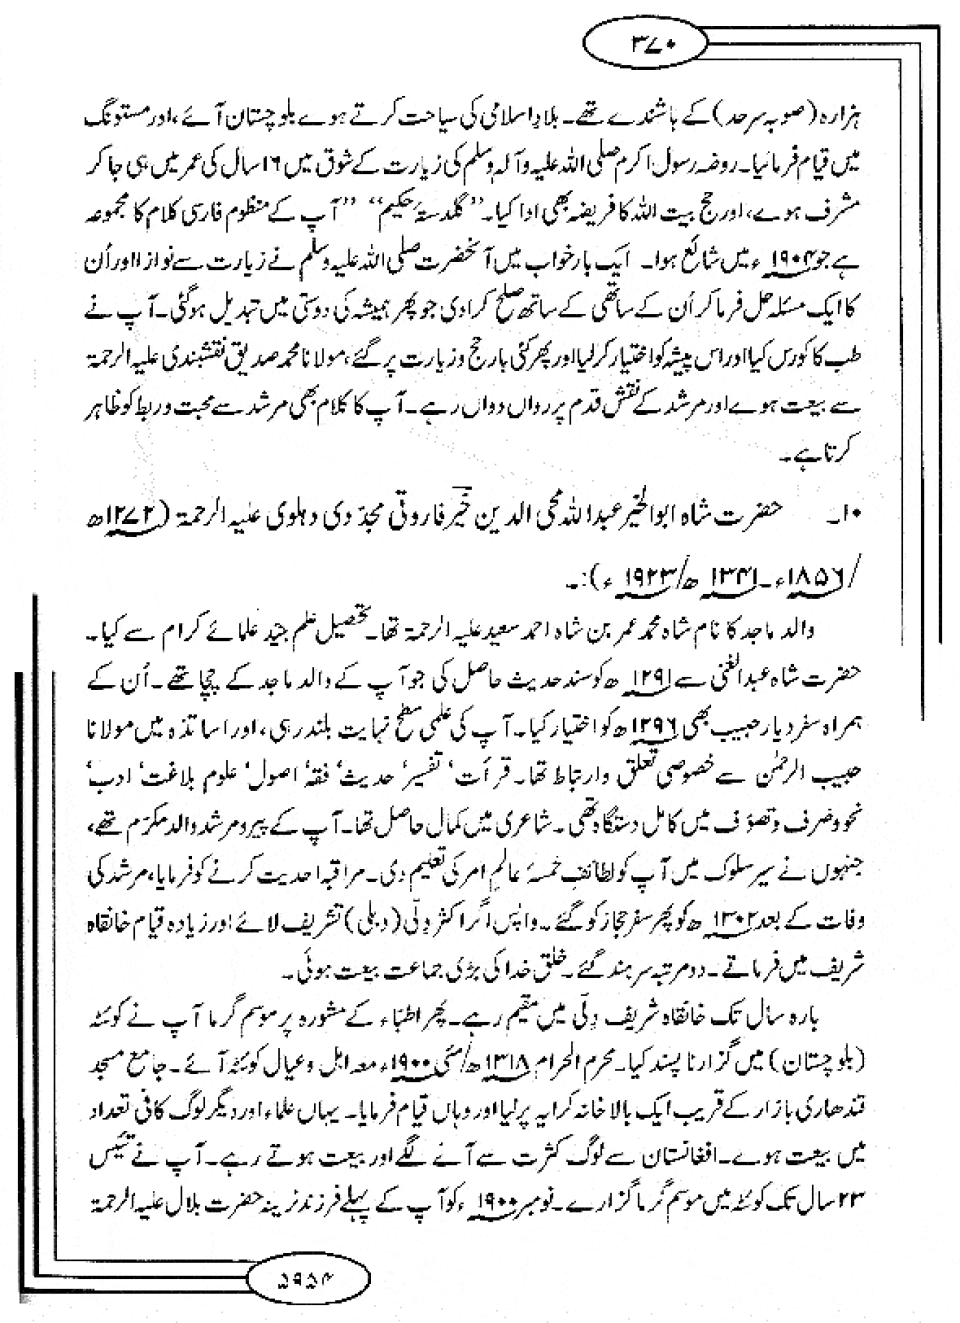 ۳۷۰
ہزارہ (صوبہ سرحد) کے باشندے تھے۔ بلادِ اسلامی کی سیاحت کرتے ہوے بلوچستان آئے، اور مستونگ
میں قیام فرمایا۔ روضہ رسول اکرم صلی اللہ علیہ وآلہٖ وسلم کی زیارت کے شوق میں ۱۶ سال کی عمر میں ہی جا کر
مشرف ہوے، اور حج بیت اللہ کا فریضہ بھی ادا کیا۔ ”گلدستۂ حکیم“ “آپ کے منظوم فارسی کلام کا مجموعہ
ہے جو ۱۹۰۴ء میں شائع ہوا۔ ایک بار خواب میں آنحضرت صلی اللہ علیہ وسلم نے زیارت سے نوازا اور اُن
کا ایک مسئلہ حل فرما کر اُن کے ساتھی کے ساتھ صلح کرا دی جو پھر ہمیشہ کی دوستی میں تبدیل ہوگئی۔ آپ نے
طب کا کورس کیا اور اس پیشہ کو اختیار کر لیا اور پھر کئی بار حج و زیارت پر گئے، مولانا محمد صدیق نقشبندی علیہ الرحمۃ
سے بیعت ہوے اور مرشد کے نقش قدم پر رواں دواں رہے۔ آپ کا کلام بھی مرشد سے محبت و ربط کو ظاہر
کرتا ہے۔
۱۰۔ حضرت شاہ ابوالخیر عبداللہ محی الدین خیر فاروقی مجدّدی دہلوی علیہ الرحمۃ (۱۲۷۲ھ
/۱۸۵۶ء۔۱۳۴۱ھ/۱۹۲۳ء):۔
والد ماجد کا نام شاہ محمد عمر بن شاہ احمد سعید علیہ الرحمۃ تھا۔ تحصیل علم جیّد علمائے کرام سے کیا۔
حضرت شاہ عبدالغنی سے ۱۲۹۱ھ کو سند حدیث حاصل کی جو آپ کے والد ماجد کے چچا تھے۔ اُن کے
ہمراہ سفر دیارِ حبیب بھی ۱۲۹۶ھ کو اختیار کیا۔ آپ کی علمی سطح نہایت بلند رہی، اور اساتذہ میں مولانا
حبیب الرحمٰن سے خصوصی تعلق وارتباط تھا۔ قرأت‘ تفسیر‘ حدیث‘ فقہ‘ اصول‘ علوم بلاغت‘ ادب‘
نحو وصرف وتصوّف میں کامل دستگاہ تھی۔ شاعری میں کمال حاصل تھا۔ آپ کے پیرو مرشد والد مکرّم تھے،
جنہوں نے سیر سلوک میں آپ کو لطائفِ خمسۂ عالمِ امر کی تعلیم دی۔ مراقبہ احدیت کرنے کو فرمایا، مرشد کی
وفات کے بعد ۱۳۰۲ھ کو پھر سفر حجاز کو گئے۔ واپس اگر اکثر دِلّی (دہلی) تشریف لائے اور زیادہ قیام خانقاہ
شریف میں فرماتے۔ دو مرتبہ سرہند گئے۔ خلقِ خدا کی بڑی جماعت بیعت ہوئی۔
بارہ سال تک خانقاہ شریف دِلّی میں مقیم رہے۔ پھر اطباء کے مشورہ پر موسم گرما آپ نے کوئٹہ
(بلوچستان) میں گزارنا پسند کیا۔ محرم الحرام ۱۳۱۸ھ/مئی ۱۹۰۰ء معہ اہل و عیال کوئٹہ آئے۔ جامع مسجد
قندھاری بازار کے قریب ایک بالا خانہ کرایہ پر لیا اور وہاں قیام فرمایا۔ یہاں علماء اور دیگر لوگ کافی تعداد
میں بیعت ہوے۔ افغانستان سے لوگ کثرت سے آنے لگے اور بیعت ہوتے رہے۔ آپ نے تئیس
۲۳ سال تک کوئٹہ میں موسم گرما گزارے۔ نومبر ۱۹۰۰ء کو آپ کے پہلے فرزند نرینہ حضرت بلال علیہ الرحمۃ
۵۹۵۴